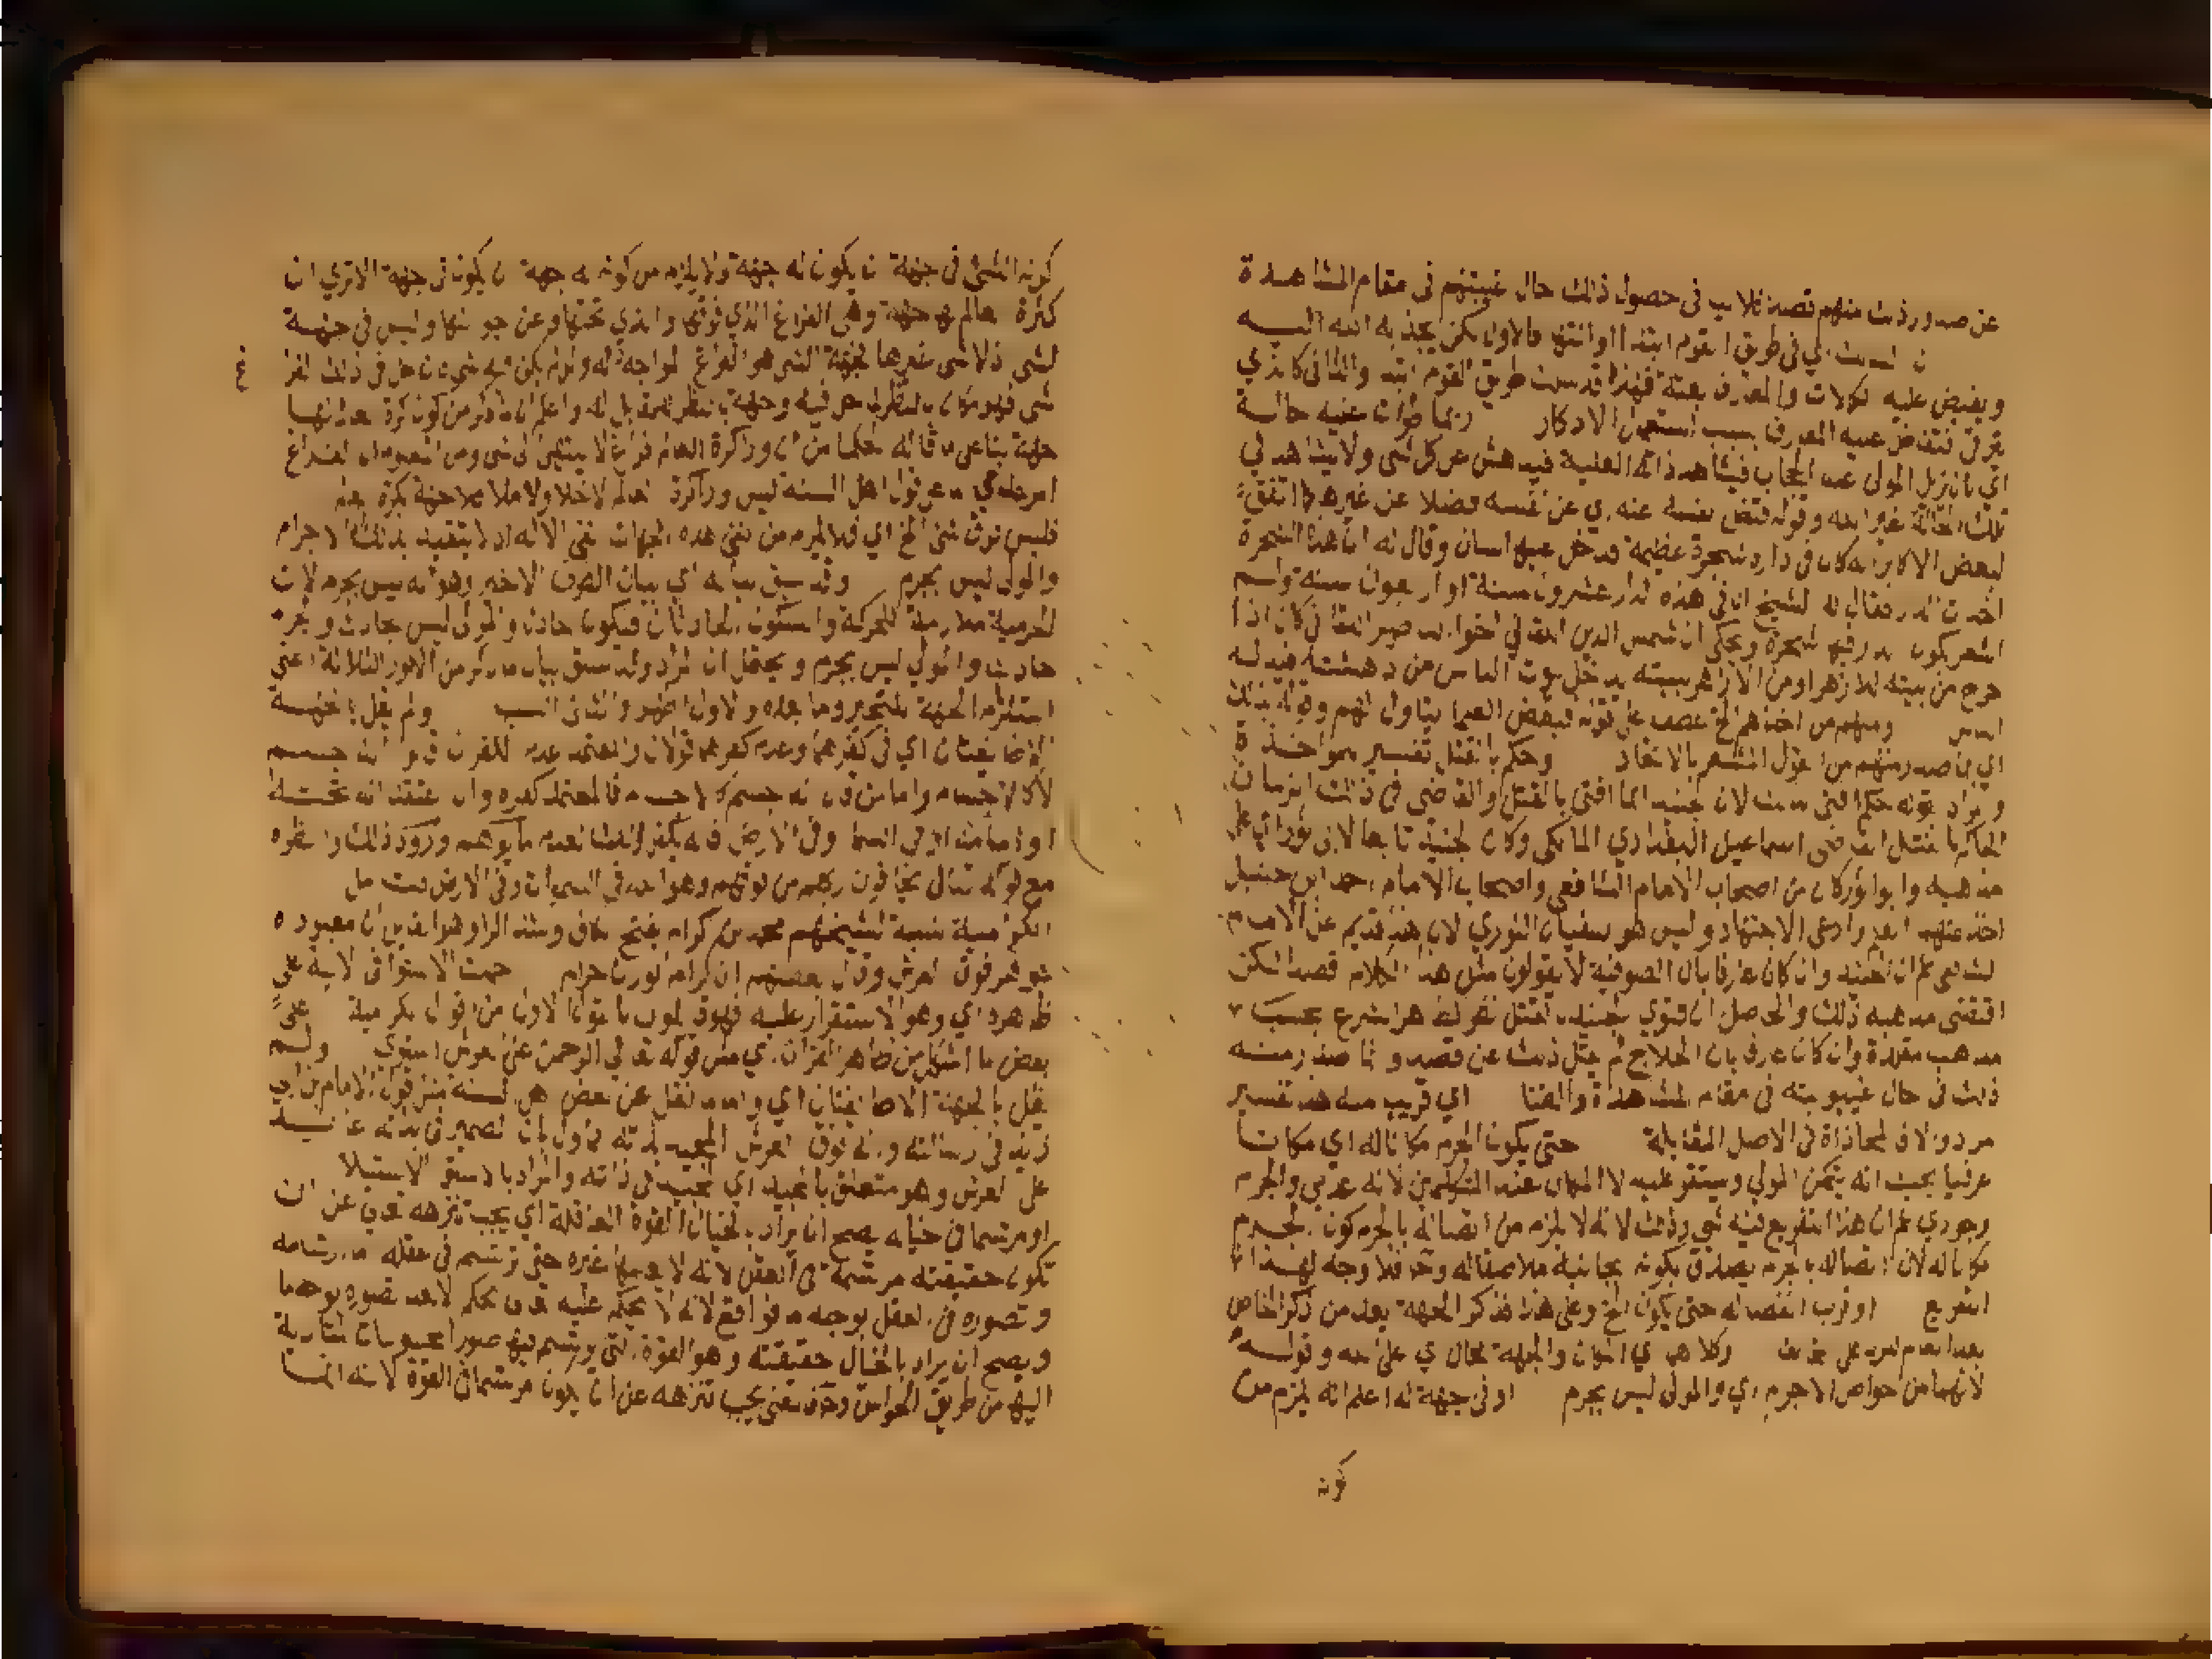 عن صدور ذلك منهم قصد فلا يب فى حصول ذلك حال غيبتهم فى مقام المشاهدة
فى طريق القوم ابتدا او انتها فالاول كمن يجذبه الله اليه
ويفيض عليه الكمالات والمعارف بغتة فهذا قد سلك طريق القوم ابتدا والثانى كالذي
يترقى فتفاض عليه المعارف بسبب استعمال الاذكار ربما طرات عليه حالة
اي بان يزيل المولى عنه الحجاب فيشاهد ذاته العلية فيدهش عن كل شى ولا يشاهد فى
تلك الحالة غير الله وقوله فتغيب نفسه عنه اي عن نفسه فضلا عن غيره كما اتفق
لبعض الاكابر انه كان فى داره شجرة عظيمة فدخل عليه انسان وقال له ان هذه الشجرة
اخذت الدار فقال له الشيخ ان فى هذه الدار عشرون سنة او اربعون سنة ولم
اشعر بكون الدار فيها شجرة ويحكى ان شمس الدين اللقانى اخو ناصر اللقانى كان اذا
خرج من بيته للازهر او من الازهر لبيته يدخل بيوت الناس من دهشته فيدله
الناس ومنهم من اخذهم الخ عطف على قوله فبعض العلما يتاول لهم وقوله بذلك
اي بما صدر منهم من القول المشعر بالاتحاد وحكم بالقتل تفسير لمواخذة
ويراد بقوله حكم افتى لان الجنيد انما افتى بالقتل والقاضى فى ذلك الزمان
الحاكم بالقتل القاضى اسماعيل البغدادي المالكى وكان الجنيد تابعا لابى ثور اي على
مذهبه وابو ثور كان من اصحاب الامام الشافعى واصحاب الامام احمد ابن حنبل
اخذ عنهم العلم وادعى الاجتهاد وليس هو سفيان الثوري لان هذا قديم عن الامام
الشافعى ثم ان الجنيد وان كان عارفا بان الصوفية لا يقولون مثل هذا الكلام قصدا لكن
اقتضى مذهبه ذلك والحاصل ان فتوي الجنيد بالقتل نظر لظاهر الشرع بحسب
مذهب مقلده وان كان عارف بان الحلاج لم يقل ذلك عن قصد وانما صدر منه
ذلك فى حال غيبوبته فى مقام المشاهدة والفنا اي قريب منه هذا تفسير
مراد والا فالمحاذاة فى الاصل المقابلة حتى يكون الجرم مكانا له اي مكانا
عرفيا بحيث انه يتمكن المولي ويستقر عليه لا المكان عند المتكلمين لانه عدمي والجرم
وجودي ثم ان هذا التفريع فيه شي وذلك لانه لا يلزم من اتصاله بالجرم كون الجرم
مكانا له لان اتصاله بالجرم يصدق بكونه بجانبه ملاصقا له وحينئذ فلا وجه لهذا
التفريع او قرب انفصاله حتى يكون الخ وعلى هذا فذكر الجهة بعد من ذكر الخاص
بعد العام وكلاهما اي المكان والجهة محال اي على الله وقوله
لانهما من خواص الاجرام اي والمولى ليس بجرم او فى جهة له اعلم انه يلزم من
كونه
كون الشئ فى جهة ان يكون له جهة ولا يلزم من كونه له جهة ان يكون فى جهة الا تري ان
كرة العالم لها جهة وهى الفراغ الذي فوقها والذي تحتها وعن جوانبها وليس فى جهة
لشى اذ لا شى غيرها فجهة الشى هو الفراغ المواجه له وان لم يكن فيه شئ فان حل فى ذلك الفراغ
٤
شى فهو مكان بالنظر لمن حل فيه وجهة بالنظر للمقابل له واعلم ان ما ذكر من كون كرة العالم لها
جهة بنا على ما قاله الحكما من ان ورا كرة العالم فراغ لا ينتهى الى شى ومن المعلوم ان الفراغ
لا خلا ولا ملا فلا جهة لكرة العالم
فليس فوق شئ الخ اي فلا يلزم من نفى هذه الجهات نفى الاله اذ لا يتقيد بذلك الا الاجرام
والمولى ليس بجرم وقد سبق بيانه اي بيان الطرف الاخير وهو انه ليس بجرم لان
الجرمية ملازمة للحركة والسكون الحادثان فيكون حادث والمولى ليس بحادث
والمولى ليس بجرم ويحتمل ان المراد وقد سبق بيان ما ذكر من الامور الثلاثة اعنى
استلزام الجهة للتحيز وما بعده والاول اظهر والثانى انسب ولم يقل بالجهة
الا طايفتان اي فى كفرهما وعدم كفرهما قولان والمعتمد عدم الكفر ان قالوا انه جسم
لا كالاجسام واما من قال انه جسم كالاجسام فالمعتمد كفره وان اعتقد انه تحتنا
او امامنا او فى السما وفى الارض فانه يكفر
مع قوله تعالى يخافون ربهم من فوقهم وهو الله فى السموات وفى الارض
الكرامية نسبة لشيخهم محمد بن كرام بفتح الكاف وشد الرا وهو القايل ان معبوده
جوهر فوق العرش وقال بعضهم ان كرام بوزن حرام حملت الاستوا فى الاية على
ظاهره اي وهو الاستقرار عليه
بعض ما اشكل من ظاهر القران اي مثل قوله تعالى الرحمن على العرش استوي ولم
يقل بالجهة الا طايفتان اي واما ما نقل عن بعض اهل السنة مثل قول الامام ابن ابى
زيد فى رسالته وانه فوق العرش المجيد بذاته فاول بان الضمير فى بذاته عائد
على العرش وهو متعلق بالمجيد اي المجيد فى ذاته والمراد بالاستوا الاستيلا
او مرتسما فى خياله يصح ان يراد بالخيال القوة العاقلة اي يجب تنزهه تعالى عن ان
تكون حقيقته مرتسمة فى العقل لانه لا يعلمها غيره حتى ترتسم فى عقله
وتصوره فى العقل بوجه ما فواقع لانه لا يحكم عليه تعالى بحكم الا بعد تصوره بوجه ما
ويصح ان يراد بالخيال حقيقته وهو القوة التى يرتسم فيها صور المحسوسات المتادية
اليها من طريق الحواس وحينئذ فيجب تنزهه عن ان يكون مرتسما فى القوة لانه انما